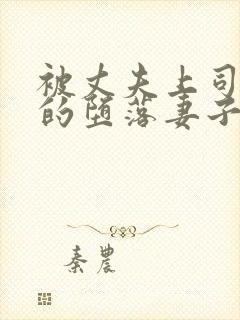 被丈夫上司
的堕落妻子
秦农